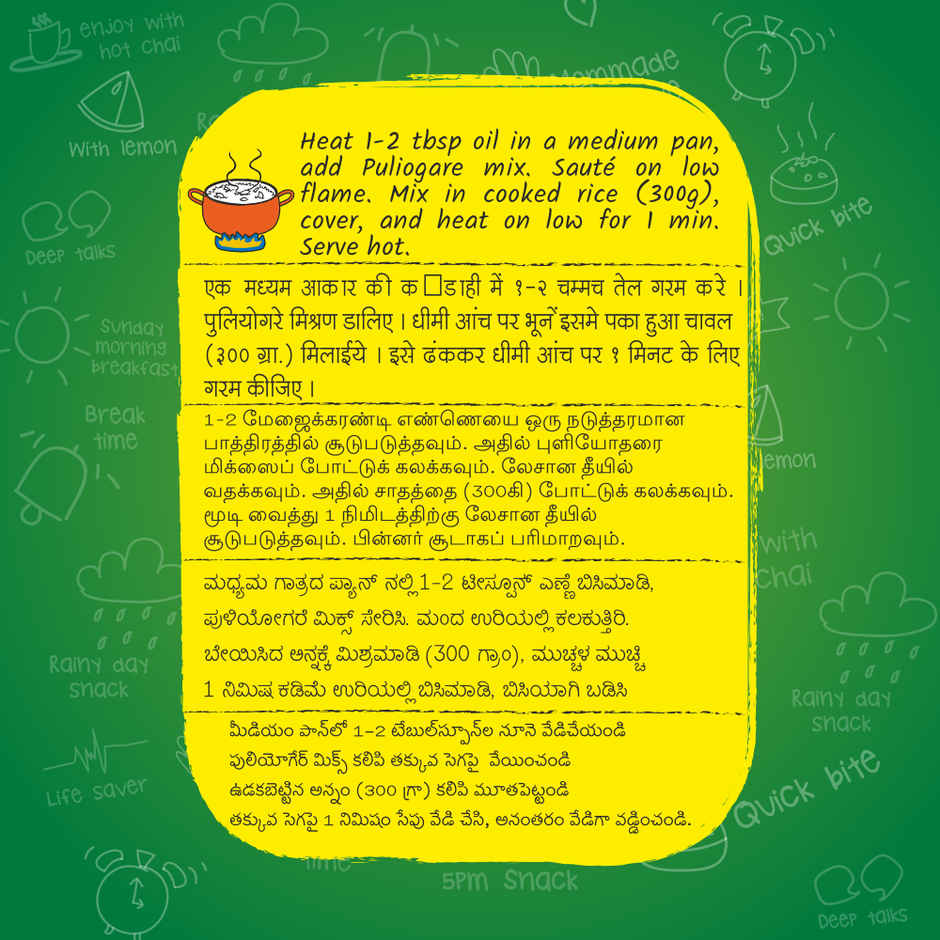 enjoy with
hot chai
With lemon
Deep talks
Sunday
morning
breakfast
Break
time
Rainy day
snack
Life saver
Mommade
Quick bite
lemon
with
chai
Rainy day
snack
Quick bite
Deep talks
time
5pm Snack
Heat 1-2 tbsp oil in a medium pan,
add Puliogare mix. Sauté on low
flame. Mix in cooked rice (300g),
cover, and heat on low for 1 min.
Serve hot.
एक मध्यम आकार की क□डाही में १-२ चम्मच तेल गरम करे ।
पुलियोगरे मिश्रण डालिए । धीमी आंच पर भूनें इसमे पका हुआ चावल
(३०० ग्रा.) मिलाईये । इसे ढंककर धीमी आंच पर १ मिनट के लिए
गरम कीजिए ।
1-2 மேஜைக்கரண்டி எண்ணெயை ஒரு நடுத்தரமான
பாத்திரத்தில் சூடுபடுத்தவும். அதில் புளியோதரை
மிக்ஸைப் போட்டுக் கலக்கவும். லேசான தீயில்
வதக்கவும். அதில் சாதத்தை (300கி) போட்டுக் கலக்கவும்.
மூடி வைத்து 1 நிமிடத்திற்கு லேசான தீயில்
சூடுபடுத்தவும். பின்னர் சூடாகப் பரிமாறவும்.
ಮಧ್ಯಮ ಗಾತ್ರದ ಪ್ಯಾನ್ ನಲ್ಲಿ 1-2 ಟೀಸ್ಪೂನ್ ಎಣ್ಣೆ ಬಿಸಿಮಾಡಿ,
ಪುಳಿಯೋಗರೆ ಮಿಕ್ಸ್ ಸೇರಿಸಿ. ಮಂದ ಉರಿಯಲ್ಲಿ ಕಲಕುತ್ತಿರಿ.
ಬೇಯಿಸಿದ ಅನ್ನಕ್ಕೆ ಮಿಶ್ರಮಾಡಿ (300 ಗ್ರಾಂ), ಮುಚ್ಚಳ ಮುಚ್ಚಿ
1 ನಿಮಿಷ ಕಡಿಮೆ ಉರಿಯಲ್ಲಿ ಬಿಸಿಮಾಡಿ, ಬಿಸಿಯಾಗಿ ಬಡಿಸಿ
మీడియం పాన్‌లో 1-2 టేబుల్‌స్పూన్‌ల నూనె వేడిచేయండి
పులియోగేర్ మిక్స్ కలిపి తక్కువ సెగపై వేయించండి
ఉడకబెట్టిన అన్నం (300 గ్రా) కలిపి మూతపెట్టండి
తక్కువ సెగపై 1 నిమిషం సేపు వేడి చేసి, అనంతరం వేడిగా వడ్డించండి.